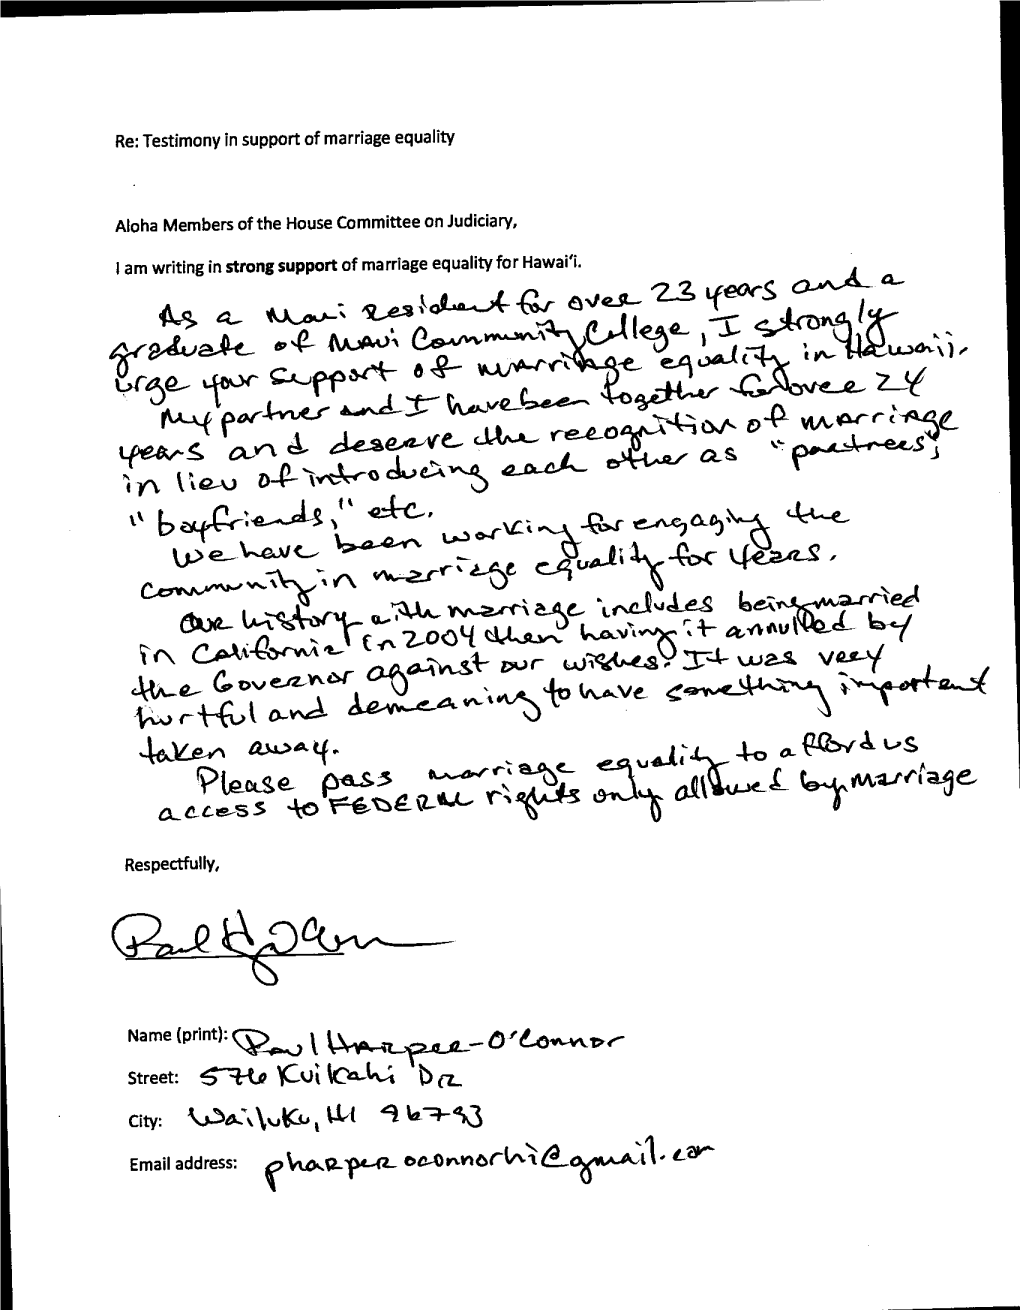 Re: Testimony in support of marriage equality
Aloha Members of the House Committee on Judiciary,
I am writing in strong support of marriage equality for Hawai'i.
As a Maui Resident for over 23 years and a
graduate of Maui Community College, I strongly
urge your support of marriage equality in Hawaii.
My partner and I have been together for over 24
years and deserve the recognition of marriage
in lieu of introducing each other as "partners",
"boyfriends," etc.
We have been working for engaging the
community in marriage equality for years.
Our history with marriage includes being married
in California in 2004 then having it annulled by
the Governor against our wishes. It was very
hurtful and demeaning to have something important
taken away.
Please pass marriage equality to afford us
access to FEDERAL rights only allowed by marriage
Respectfully,
Name (print): Paul Harper-O'Connor
Street: 576 Kuikahi DR
City: Wailuku, HI 96793
Email address: pharper oconnorhi@gmail.com